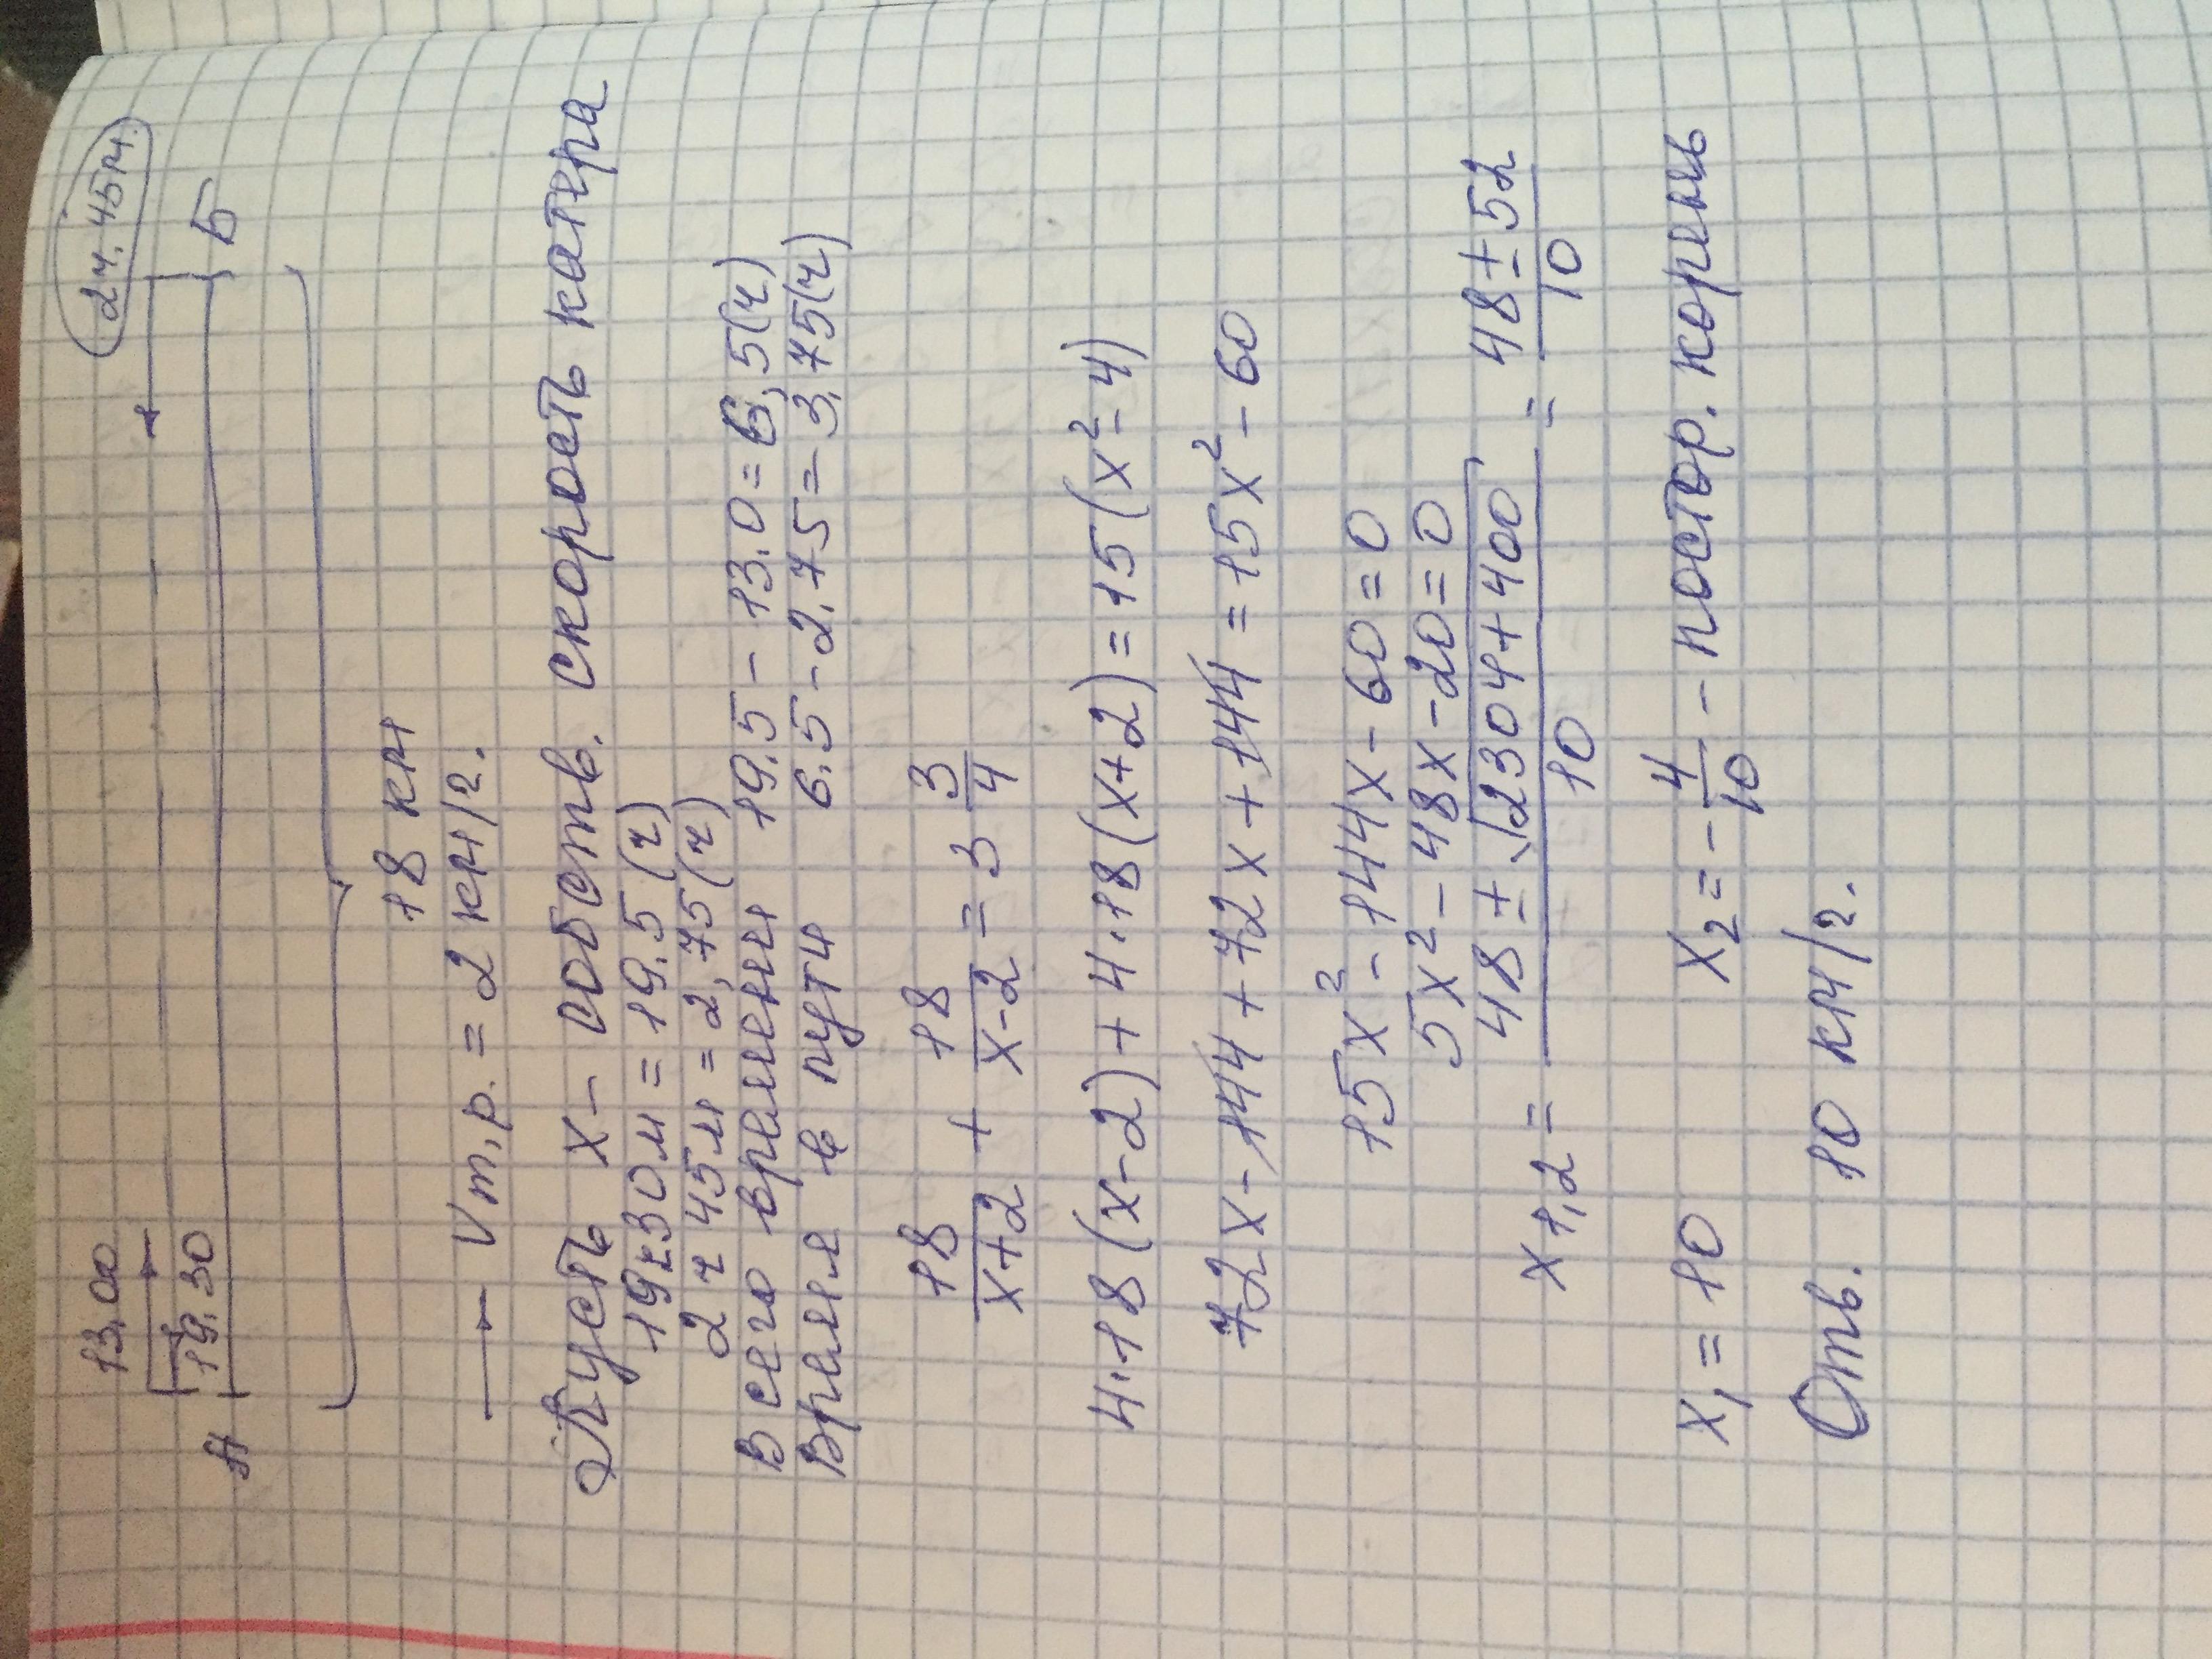 13.00 2ч. 45м.
19.30
А Б
18 км
Vт.р. = 2 км/г.
Пусть x - собств. скорость катера
19ч30м = 19.5 (ч)
2 ч 45м = 2,75 (ч)
Всего времени 19,5 - 13,0 = 6,5(ч)
Время в пути 6,5 - 2,75 = 3,75(ч)
18/(x+2) + 18/(x-2) = 3 3/4
4·18(x-2) + 4·18(x+2) = 15(x² - 4)
72x - 144 + 72x + 144 = 15x² - 60
15x² - 144x - 60 = 0
5x² - 48x - 20 = 0
x1,2 = (48 ± √(2304 + 400))/10 = (48 ± 52)/10
x1 = 10 x2 = -4/10 - постор. корень
Отв. 10 км/г.